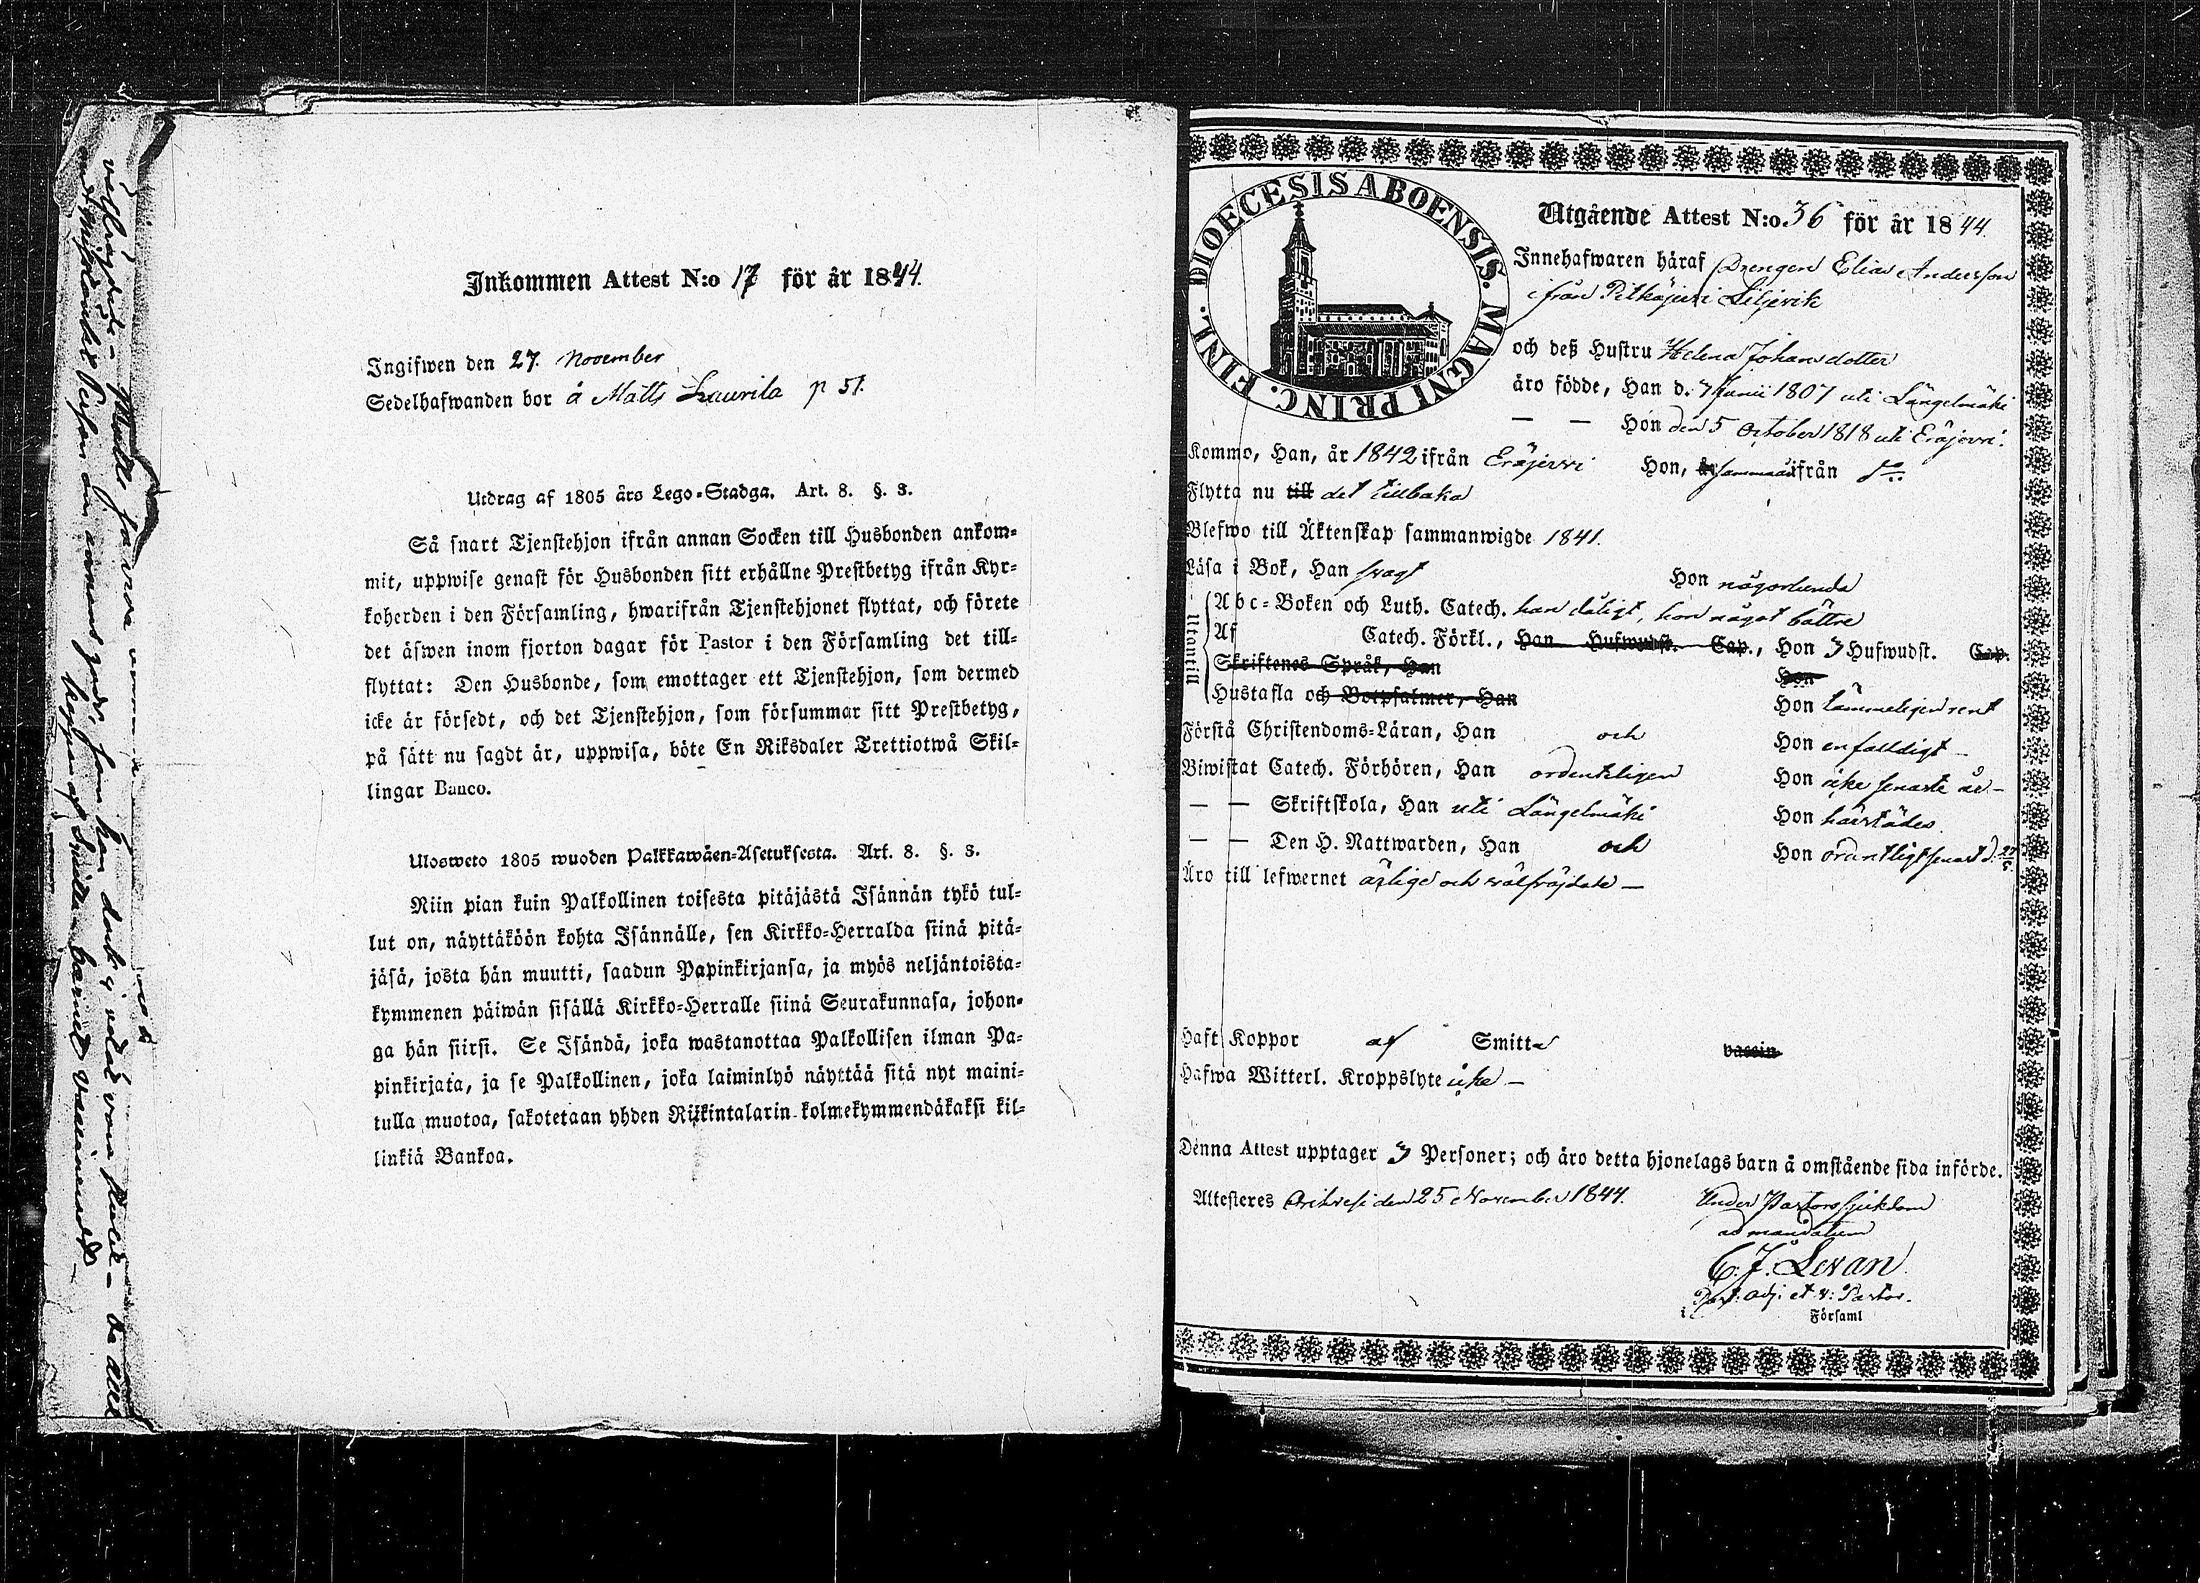 Inkommen Attest N:o 17 för år 1844.
Ingifwen den 27. November
Sedelhafwanden bor å Matts Laurila p 51.
Utdrag af 1805 års Lego-Stadga. Art. 8. §. 3.
Så snart Tjenstehjon ifrån annan Socken till Husbonden ankom-
mit, uppwise genast för Husbonden sitt erhållne Prestbetyg ifrån Kyr-
koherden i den Församling, hwarifrån Tjenstehjonet flyttat, och förete
det äfwen inom fjorton dagar för Pastor i den Församling det till-
flyttat: Den Husbonde, som emottager ett Tjenstehjon, som dermed
icke är försedt, och det Tjenstehjon, som försummar sitt Prestbetyg,
på sätt nu sagdt är, uppwisa, böte En Riksdaler Trettiotwå Skil-
lingar Banco.
Ulosweto 1805 wuoden Palkkawäen-Asetuksesta. Art. 8. §. 3.
Niin pian kuin Palkollinen toisesta pitäjästä Isännän tykö tul-
lut on, näyttäköön kohta Isännälle, sen Kirkko-Herralda siinä pitä-
jäsä, josta hän muutti, saadun Papinkirjansa, ja myös neljäntoista-
kymmenen päiwän sisällä Kirkko-Herralle siinä Seurakunnasa, johon-
ga hän siirsi. Se Isändä, joka wastanottaa Palkollisen ilman Pa-
pinkirjata, ja se Palkollinen, joka laiminlyö näyttää sitä nyt maini-
tulla muotoa, sakotetaan yhden Riikintalarin kolmekymmendäkaksi kil-
linkiä Bankoa.
DIOECESIS ABOENSIS. MAGNI PRINC. FINL.
Utgående Attest N:o 36 för år 1844.
Innehafwaren häraf Drengen Elias Andersson
ifrån Pitkäjärvi Liljevik
och deß Hustru Helena Johansdotter
äro födde, Han d. 7 Junii 1807 uti Längelmäki
— — Hon den 5 October 1818 uti Eräjervi.
Kommo, Han, år 1842 ifrån Eräjervi Hon, år samma ifrån d:o
Flytta nu till det tillbaka
Blefwo till Äktenskap sammanwigde 1841.
Läsa i Bok, Han svagt Hon någorlunda
Utantill
Abc-Boken och Luth. Catech. han dåligt, hon något bättre
Af Catech. Förkl., Han Hufwudst. Cap., Hon 3 Hufwudst. Cap.
Skriftenes Språk, Han Hon
Hustafla och Botpsalmer, Han Hon tämmeligen rent
Förstå Christendoms-Läran, Han och Hon enfaldigt —
Biwistat Catech. Förhören, Han ordentligen Hon icke senaste år —
— — Skriftskola, Han uti Längelmäki Hon härstädes.
— — Den H. Nattwarden, Han och Hon ordentligt senast d.
Äro till lefwernet ärlige och välfräjdade —
Haft Koppor af Smitta vaccin
Hafwa Witterl. Kroppslyte icke —
Denna Attest upptager 3 Personer; och äro detta hjonelags barn å omstående sida införde.
Attesteres Orihvesi den 25 November 1844. Under Pastors sjukdom
ad mandatum
C. J. Levan
Past: adj. et v: Pastor.
i Församl